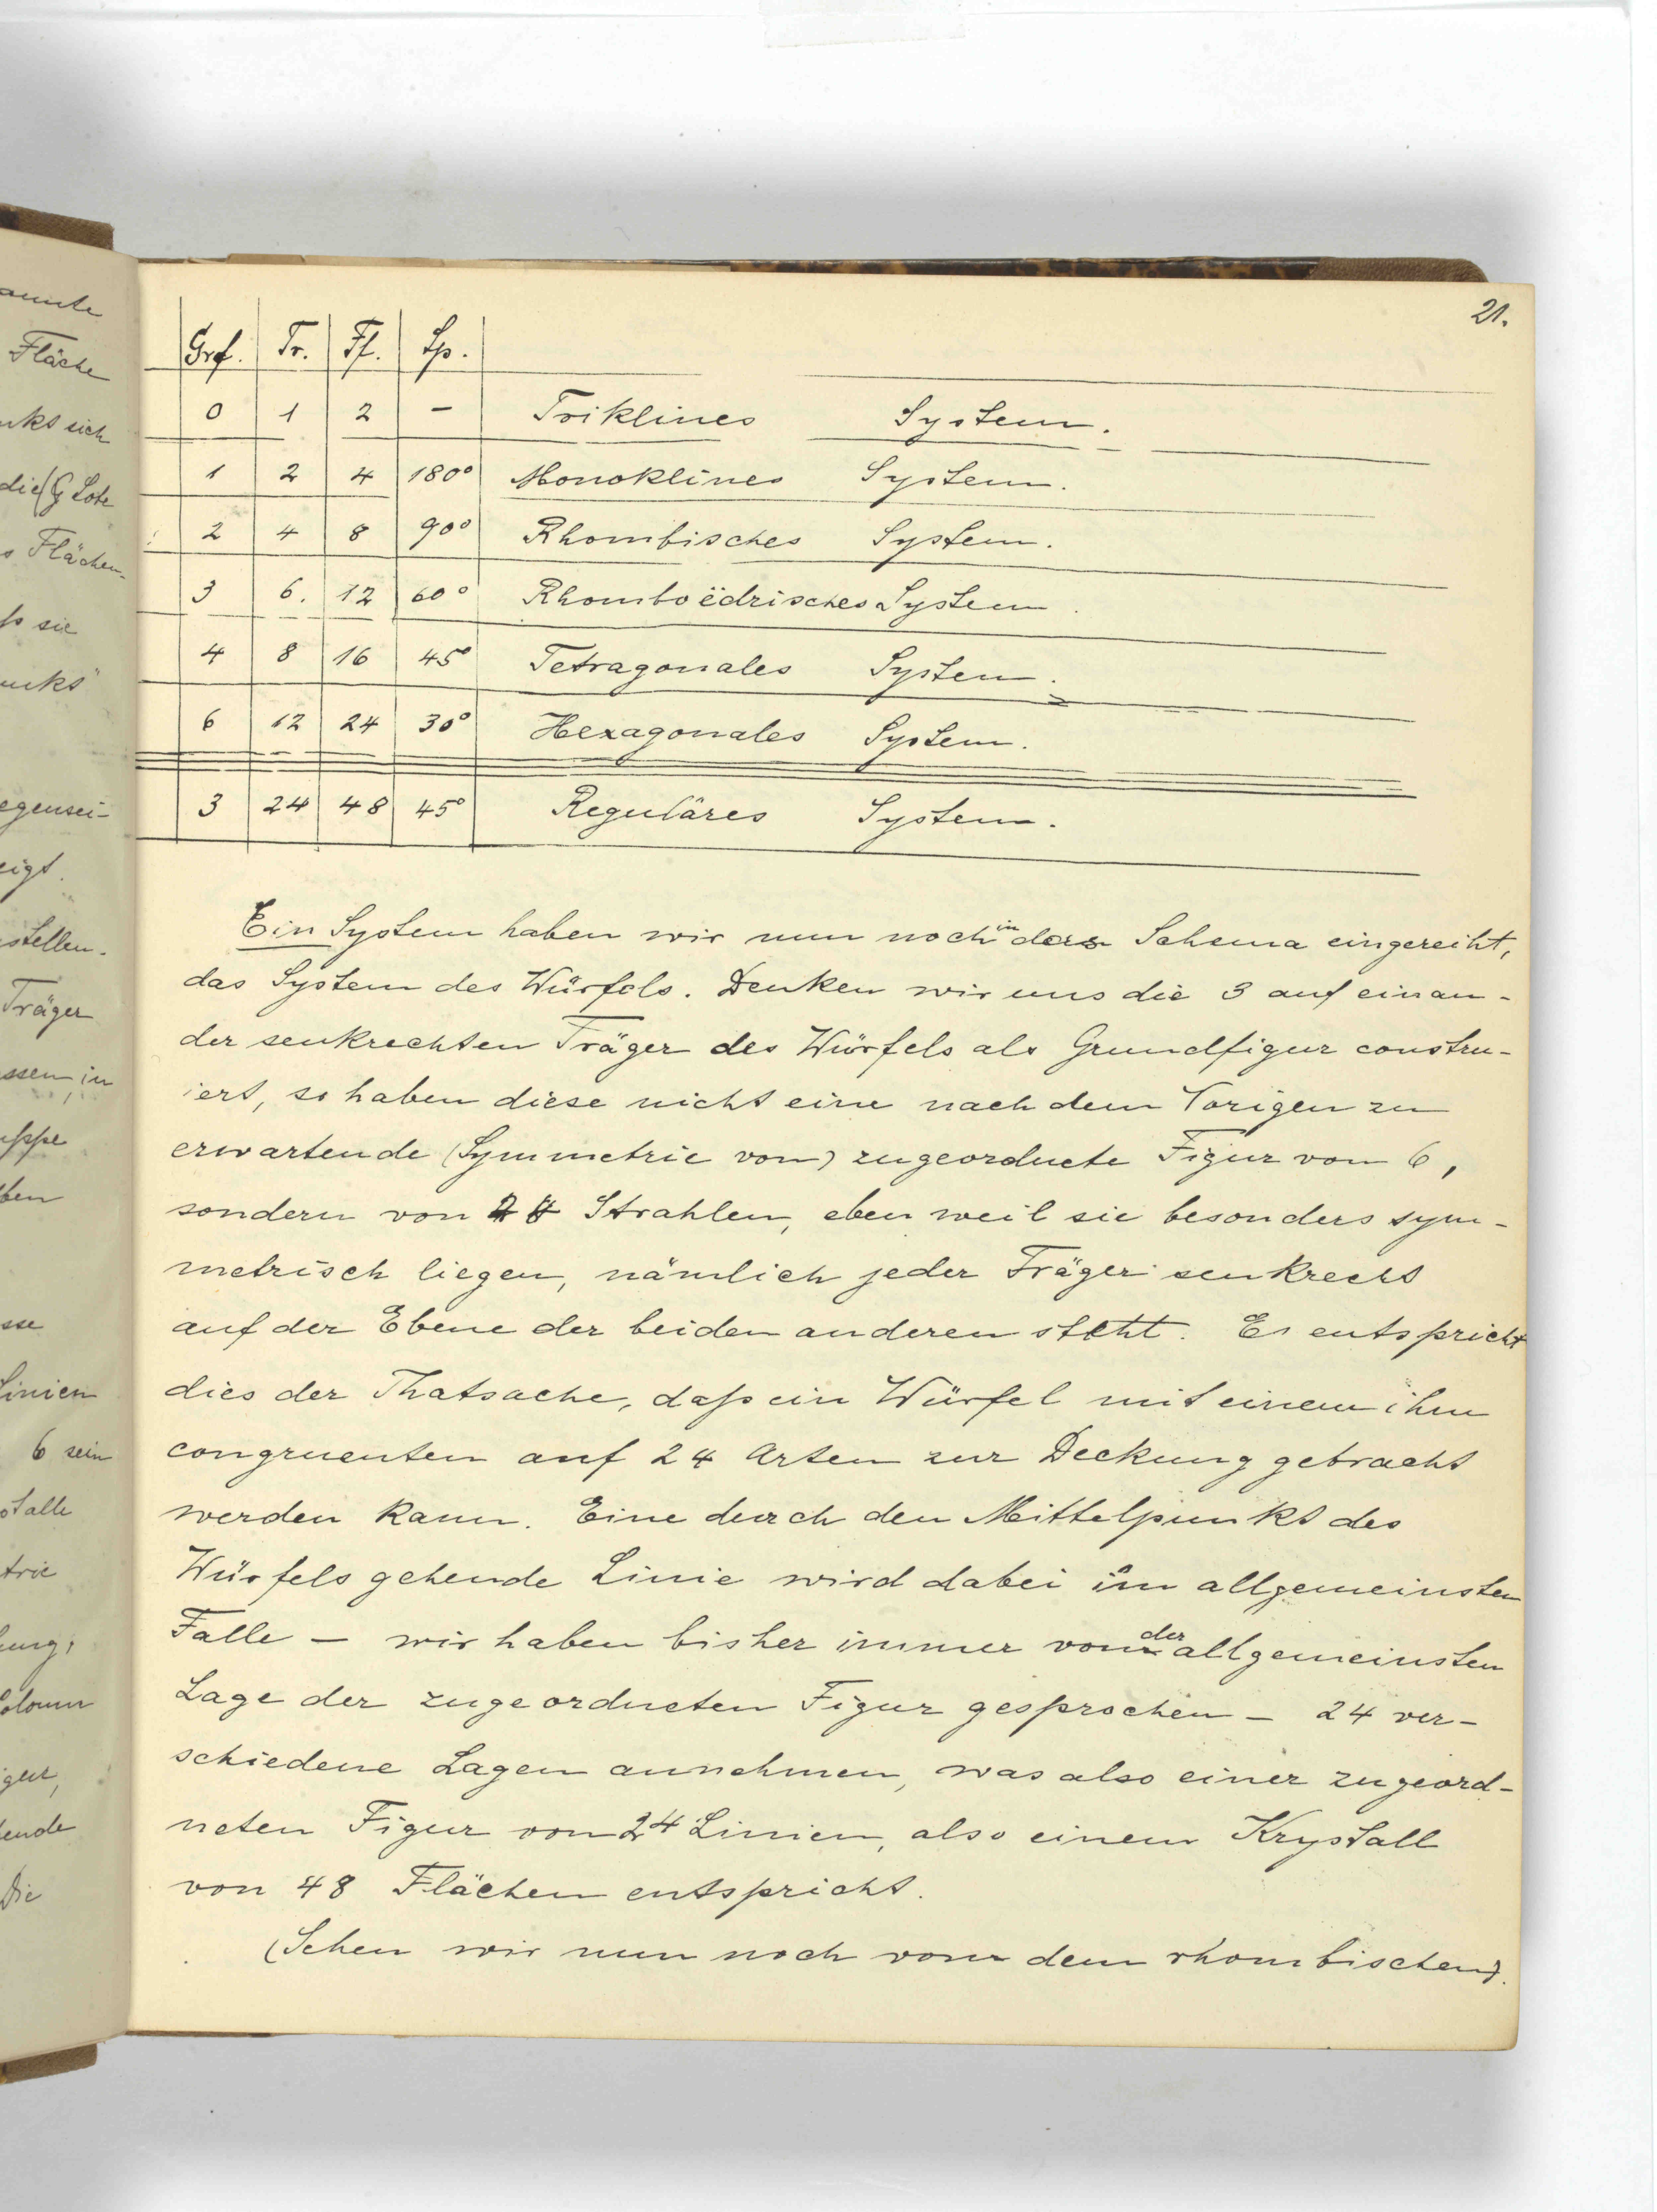 21.
Grf. Tr. Ff. Sp.
0 1 2 – Triklines System.
1 2 4 180° Monoklines System.
2 4 8 90° Rhombisches System.
3 6. 12 60° Rhomboëdrisches System.
4 8 16 45° Tetragonales System.
6 12 24 30° Hexagonales System.
3 24 48 45° Reguläres System.
Ein System haben wir nun noch in das Schema eingereiht,
das System des Würfels. Denken wir uns die 3 auf einan-
der senkrechten Träger des Würfels als Grundfigur constru-
iert, so haben diese nicht eine nach dem Vorigen zu
erwartende (Symmetrie von) zugeordnete Figur von 6,
sondern von Strahlen, eben weil sie besonders sym-
metrisch liegen, nämlich jeder Träger senkrecht
auf der Ebene der beiden anderen steht. Es entspricht
dies der Thatsache, daß ein Würfel mit einem ihm
congruenten auf 24 Arten zur Deckung gebracht
werden kann. Eine durch den Mittelpunkt des
Würfels gehende Linie wird dabei im allgemeinsten
Falle – wir haben bisher immer von der allgemeinsten
Lage der zugeordneten Figur gesprochen – 24 ver-
schiedene Lagen annehmen, was also einer zugeord-
neten Figur von 24 Linien, also einem Krystall
von 48 Flächen entspricht.
(Sehen wir nun noch von dem rhombischen).
Fläche
nkt sich
die (G Lote
s Flächen-
ß sie
egensei-
eigt.
stellen.
Träger
ssen, in
uppe
ben
sse
Linien
6 sein
stalle
trie
ung,
olonn
gur,
ende
Die